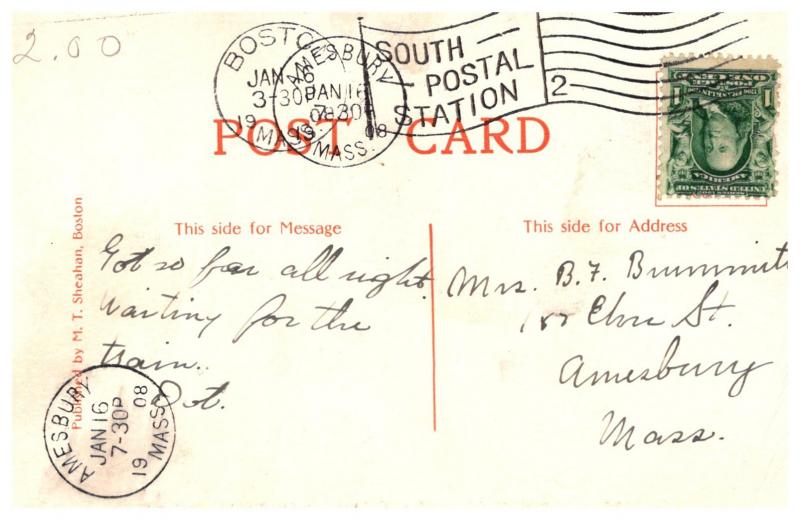 2.00
BOSTO
JAN 16
3-30P
19 08
MASS.
AMESBURY
JAN 16
7-30P
19 08
MASS.
SOUTH
POSTAL
STATION
2
ONE CENT
1 1
UNITED STATES OF
AMERICA
POST CARD
This side for Message
This side for Address
Published by M. T. Sheahan, Boston
Got so far all right.
Waiting for the
train.
Mrs. B. F. Brummitt
St.
Amesbury
Mass.
AMESBURY
JAN 16
7-30P
19 08
MASS.